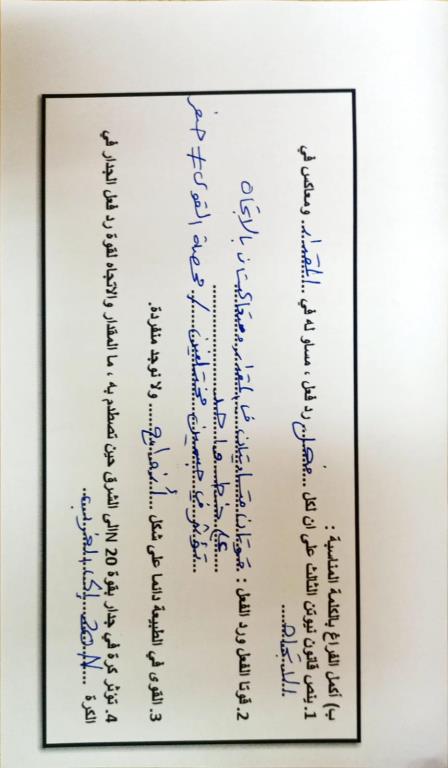 ب) أكمل الفراغ بالكلمة المناسبة :
1. ينص قانون نيوتن الثالث على ان لكل ...فعل... رد فعل ، مساو له في ...المقدار... ومعاكس في
...الاتجاه...
2. قوتا الفعل ورد الفعل : قوتان متساويتان في المقدار ومتعاكستان بالاتجاه
على خط واحد
تؤثر في جسمين مختلفين / محصلة القوى ≠ صفر
3. القوى في الطبيعة دائما على شكل ...أزواج... ولا توجد منفردة.
4. تؤثر كرة في جدار بقوة 20 N الى الشرق حين تصطدم به ، ما المقدار والاتجاه لقوة رد فعل الجدار في
الكرة ...20 N إلى الغرب...